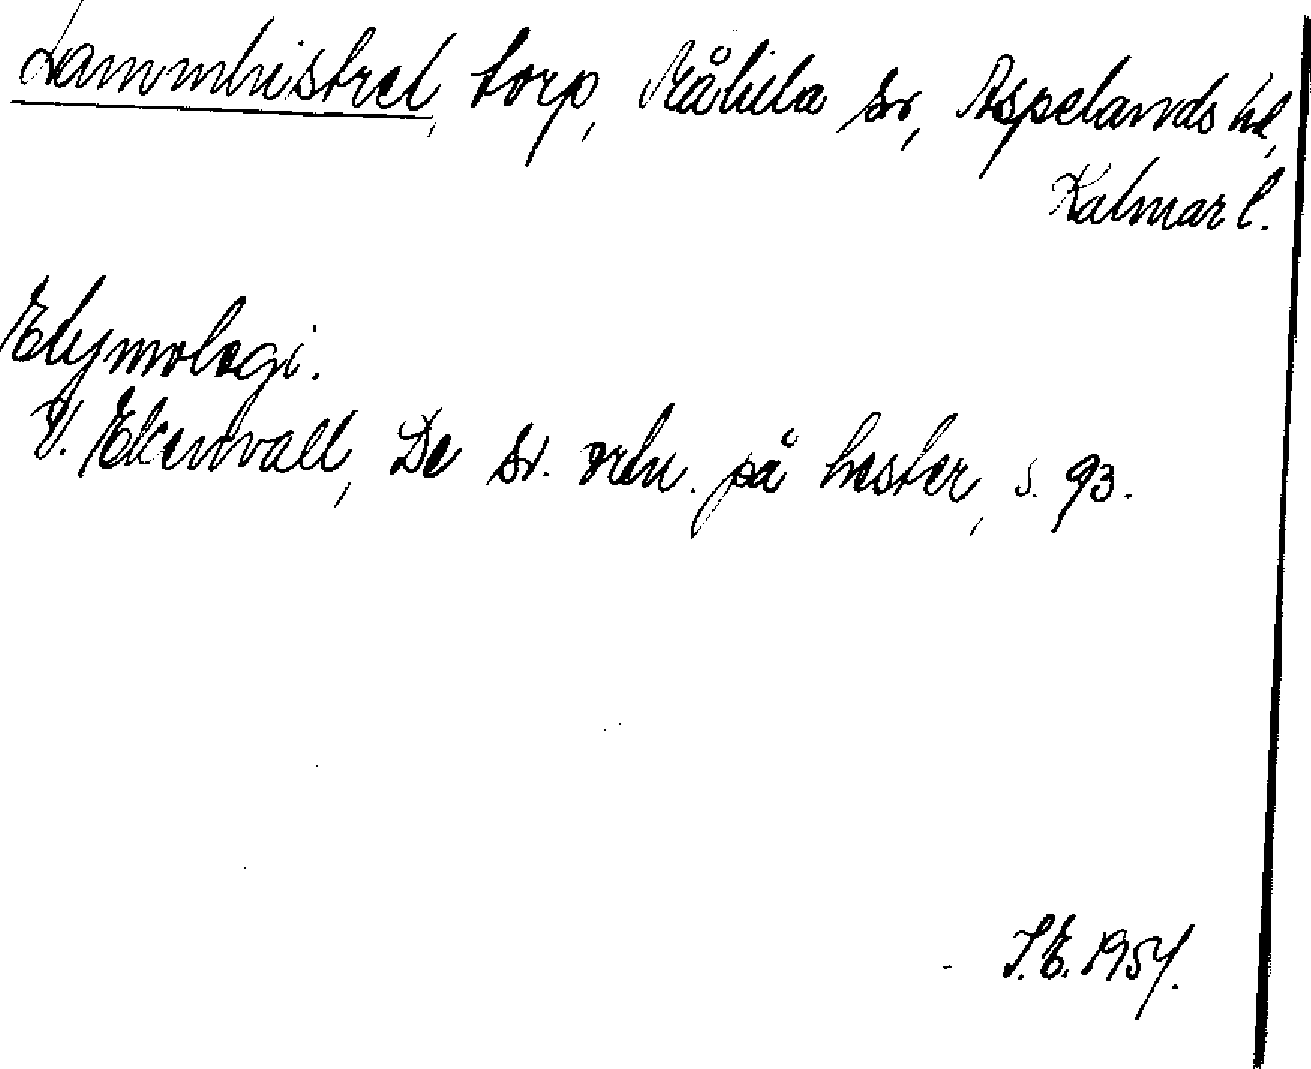 Lammhistret, torp, Målilla sn, Aspelands hd,
Kalmar l.
Etymologi.
V. Ekenvall, De sv. ortn. på hester, s. 93.
I.E. 1954.